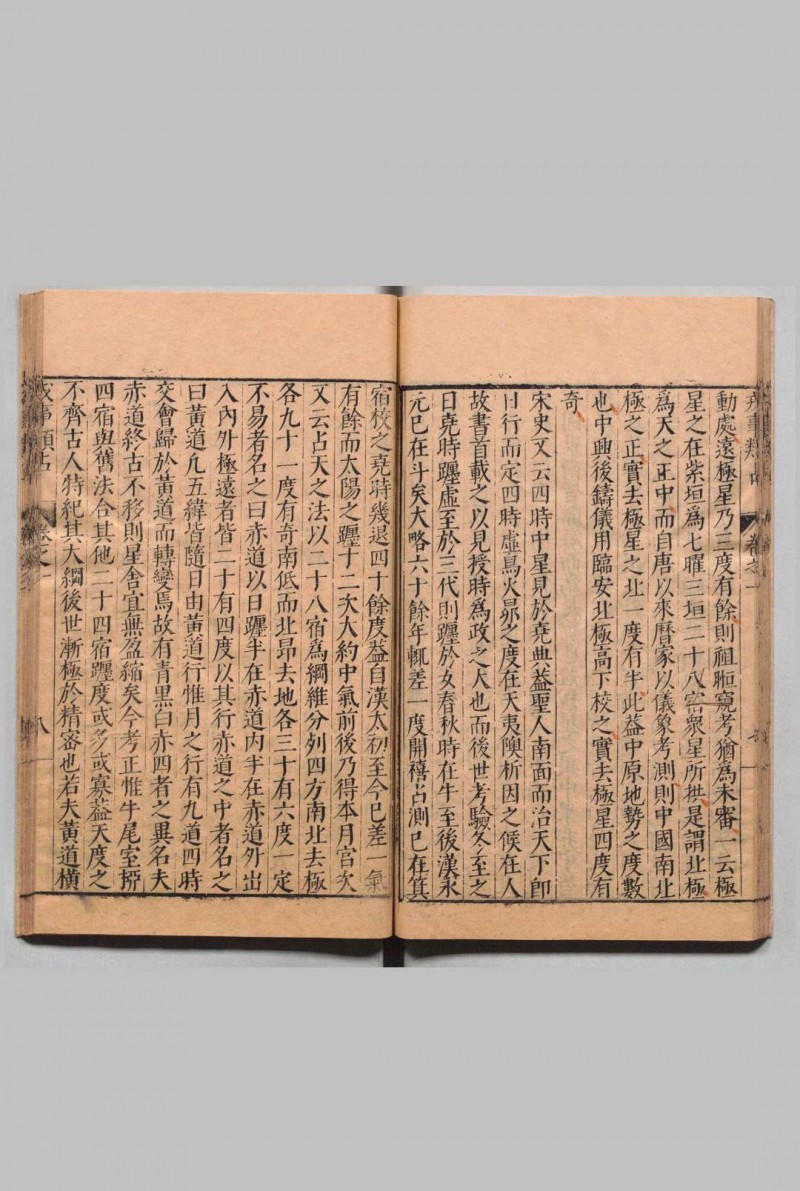 戎事類占 卷之一
動處遠極星乃三度有餘則祖暅窺考猶為未審一云極
星之在紫垣為七曜三垣二十八宿衆星所拱是謂北極
為天之正中而自唐以來曆家以儀象考測則中國南北
極之正實去極星之北一度有半此葢中原地勢之度數
也中興後鑄儀用臨安北極高下校之實去極星四度有
奇
宋史又云四時中星見於堯典葢聖人南面而治天下即
日行而定四時虛鳥火昴之度在天夷隩析因之候在人
故書首載之以見授時為政之大也而後世考驗冬至之
日堯時躔虛至於三代則躔於女春秋時在牛至後漢永
元已在斗矣大略六十餘年輒差一度開禧占測已在箕
宿校之堯時幾退四十餘度葢自漢太初至今已差一氣
有餘而太陽之躔十二次大約中氣前後乃得本月宮次
又云占天之法以二十八宿爲綱維分列四方南北去極
各九十一度有奇南低而北昂去地各三十有六度一定
不易者名之曰赤道以日躔半在赤道內半在赤道外出
入內外極遠者皆二十有四度以其行赤道之中者名之
曰黃道凡五緯皆隨日由黃道行惟月之行有九道四時
交會歸於黃道而轉變焉故有青黑白赤四者之異名夫
赤道終古不移則星舍宜無盈縮矣今考正惟牛尾室
四宿與舊法合其他二十四宿躔度或多或寡葢天度之
不齊古人特紀其大綱後世漸極於精審也若夫黃道橫
戎事類占 卷之一 八